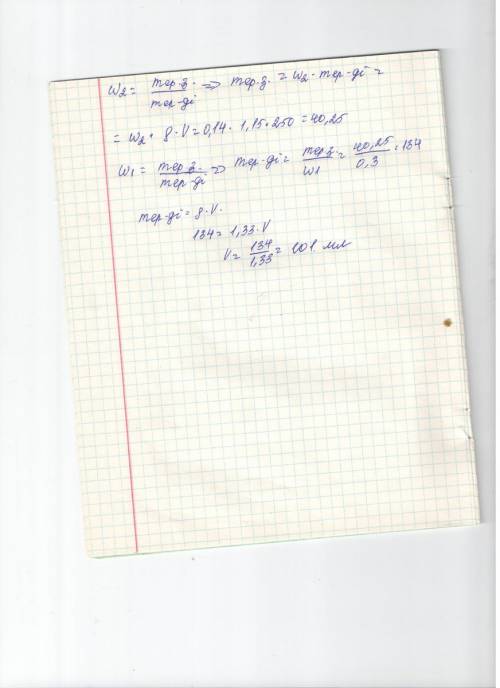 w₂ = mер.з. / mер-ді ⇒ mер.з. = w₂ · mер-ді =
= w₂ · ρ · V = 0,14 · 1,15 · 250 = 40,25
w₁ = mер.з. / mер-ді ⇒ mер-ді = mер.з. / w₁ = 40,25 / 0,3 = 134
mер-ді = ρ · V.
134 = 1,33 · V
V = 134 / 1,33 = 101 мл